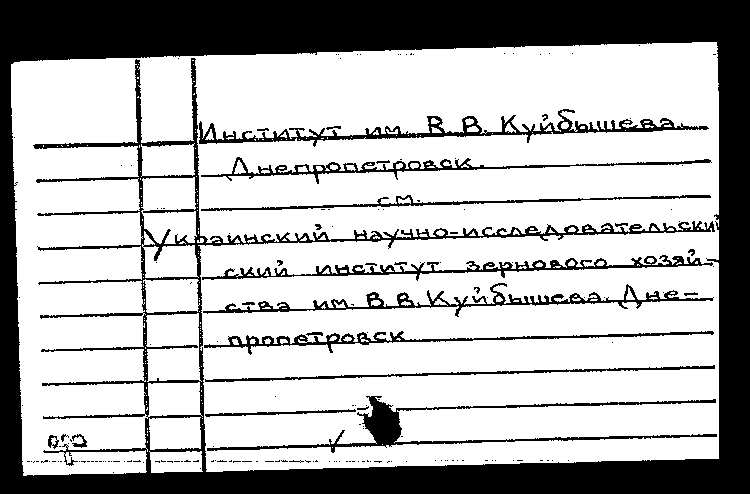 Институт им. В. В. Куйбышева.
Днепропетровск.
см.
Украинский научно-исследовательский
ский институт зернового хозяй-
ства им. В. В. Куйбышева. Дне-
пропетровск